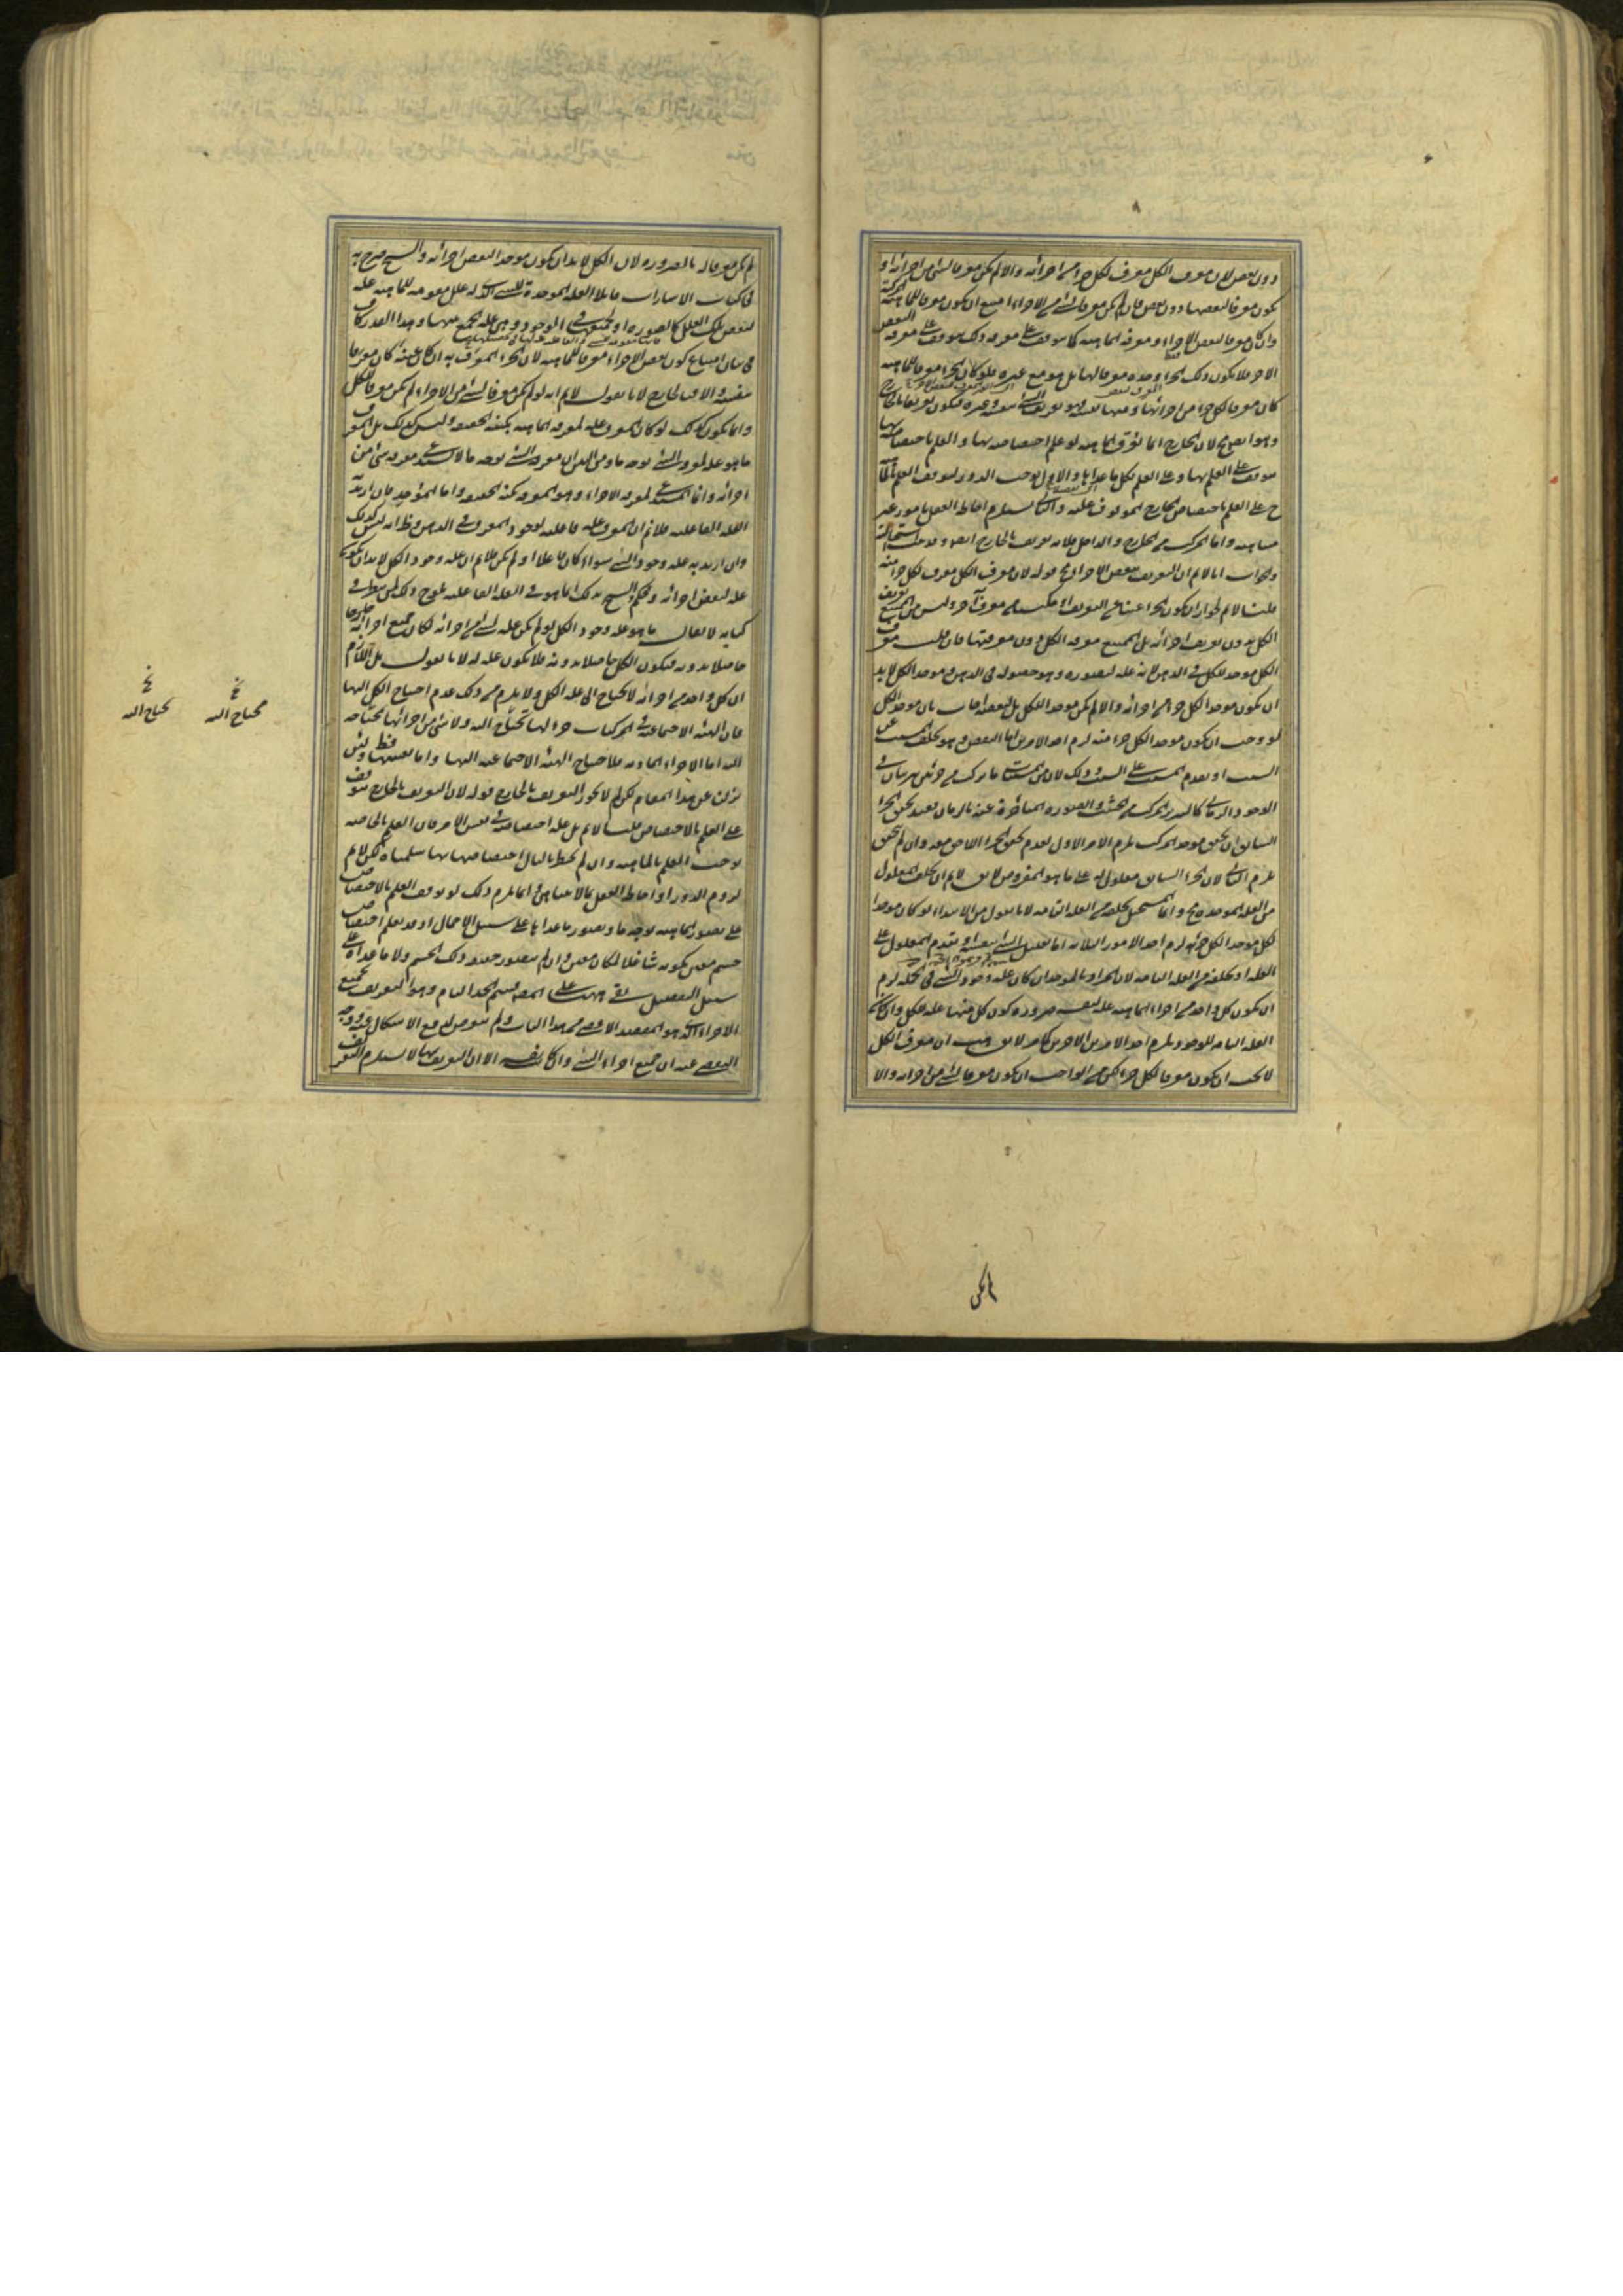 دون بعض لان معرف الكل معرف لكل جزء من اجزائه والا لم يكن معرفا لشيء من اجزائه او
يكون معرفا لبعضها دون بعض فان لم يكن معرفا لشيء من الاجزاء امتنع ان يكون معرفا للماهية المركبة
وان كان معرفا لبعض الاجزاء ومعرفة الماهية كما يتوقف على معرفة ذلك يتوقف على معرفة البعض
الاخر فلا يكون ذلك الجزء وحده معرفا لها بل هو مع غيره فلو كان الجزء معرفا للماهية
كان معرفا لكل جزء من اجزائها ومنها نفسه وهو تعريف الشيء بنفسه وغيره فيكون تعريفا بالخارج
وهو ايضا مح لان الخارج انما يعرف الماهية لو علم اختصاصه بها والعلم باختصاصه بها
يتوقف على العلم بها وعلى العلم بكل ما عداها والاول يوجب الدور لتوقف العلم بالماهية
ح على العلم باختصاص الخارج الموقوف عليه والثاني يستلزم احاطة العقل بامور غير
متناهية واما المركب من الخارج والداخل فلانه تعريف بالخارج ايضا وقد ثبت استحالته
والجواب انا لا نم ان التعريف ببعض الاجزاء مح قوله لان معرف الكل معرف لكل جزء منه
قلنا لا نم لجواز ان يكون الجزء غنيا عن التعريف او مكتسبا من معرف آخر وليس من الممتنع تعريف
الكل بدون تعريف اجزائه بل الممتنع معرفة الكل دون معرفتها فان قلت معرف
الكل موجد للكل في الذهن لانه علة لتصوره وهو حصوله في الذهن وموجد الكل لا بد
ان يكون موجدا لكل جزء من اجزائه والا لم يكن موجدا للكل بل لبعضه اجاب بان موجد الكل
لو وجب ان يكون موجدا لكل جزء منه لزم احد الامرين اما البعض وهو تخلف المسبب عن
السبب او تقدم المسبب على السبب وذلك لان من المسببات ما يتركب من جزئين مرتبان في
الوجود الزماني كالسرير المركب من خشب والصورة المتأخرة عنه بالزمان فعند تحقق الجزء
السابق ان تحقق موجد المركب يلزم الامر الاول لعدم تحقق الجزء اللاحق معه وان لم يتحقق
يلزم الثاني لان الجزء السابق معلول له على ما هو المفروض لا يق لا نم ان تخلف المعلول
من العلة الموجدة مح وانما المستحيل تخلفه من العلة التامة لانا نقول من الابتداء لو كان موجدا
لكل موجد الكل جزئه لزم احد الامور الثلاثة اما تعليل الشيء بنفسه او تقدم المعلول على
العلة او تخلفه من العلة التامة لان المراد بالموجد ان كان علة وجود الشيء في الجملة لزم
ان يكون كل واحد من اجزاء الماهية علة لنفسه ضرورة كون كل منها علة للكل وان كان
العلة التامة للوجود يلزم احد الامرين الاخرين كما مر لا يق هب ان معرف الكل
لا يجب ان يكون معرفا لكل جزء لكن من الواجب ان يكون معرفا لشيء من اجزائه والا
لم يكن
لم يكن معرفا له بالضرورة ولان الكل لا بد ان يكون موجدا لبعض اجزائه والشيخ صرح به
في كتاب الاشارات قائلا العلة الموجدة للشيء الذي له علل مقومة للماهية علة
لبعض تلك العلل كالصورة او لجميعها في الوجود وهي علة الجمع بينها وهذا القدر كاف
في بيان امتناع كون بعض الاجزاء معرفا للماهية لان الجزء المعرف به ان كان عينه كان معرفا
بنفسه والا فبالخارج لانا نقول لا نم انه لو لم يكن معرفا لشيء من الاجزاء لم يكن معرفا للكل
وانما يكون كذلك لو كان المعرف علة لمعرفة الماهية بكنه الحقيقة وليس كذلك بل المعرف
ما هو علة لمعرفة الشيء بوجه ما ومن البين ان معرفة الشيء بوجه ما لا يستدعي معرفة شيء من
اجزائه وانما المستدعي لمعرفة الاجزاء وهو المعرفة بكنه الحقيقة واما الموجد فان اريد به
العلة الفاعلية فلا نم ان المعرف علة فاعلية لوجود المعرف في الذهن وظ انه ليس كذلك
وان اريد به علة وجود الشيء سواء كان فاعلا او لم يكن فلا نم ان علة وجود الكل لا بد ان يكون
علة لبعض اجزائه وحكم الشيخ بذلك انما هو في العلة الفاعلية يلوح ذلك لمن نظر في
كتابه لا يقال ما هو علة وجود الكل لو لم يكن علة لشيء من اجزائه لكان جميع اجزائه
حاصلا بدونه فيكون الكل حاصلا بدونه فلا يكون علة له لانا نقول بل اللازم
ان كل واحد من اجزائه لا يحتاج الى علة الكل ولا يلزم من ذلك عدم احتياج الكل اليها
فان الهيئة الاجتماعية في المركبات جزء لها تحتاج اليه ولا شيء من اجزائها محتاجة
اليه اما الاجزاء المادية فلاحتياج الهيئة الاجتماعية اليها واما نفسها فظ ولئن
نزلنا عن هذا المقام لكن لم لا يجوز التعريف بالخارج قوله لان التعريف بالخارج يتوقف
على العلم بالاختصاص قلنا لا نم بل على اختصاصه في نفس الامر فان العلم بالخاصة
يوجب العلم بالماهية وان لم يخطر بالبال اختصاصها بها سلمناه لكن لا نم
لزوم الدور او احاطة العقل بما لا يتناهى وانما يلزم ذلك لو توقف العلم بالاختصاص
على تصور الماهية بوجه ما وتصور ما عداها على سبيل الاجمال او قد يعلم اختصاص
جسم معين بكونه شاغلا لمكان معين وان لم يتصور حقيقة ذلك الجسم ولا ما عداه على
سبيل التفصيل بقي ههنا على المصنف قسم الحد التام وهو التعريف بجميع
الاجزاء الذي هو المقصد الاقصى من هذا الباب ولم يتعرض لدفع الاشكال عنه ووجه
التفصي عنه ان جميع اجزاء الشيء وان كان نفسه الا ان التعريف بها لا يستلزم التعريف
يحتاج اليه
محتاج اليه